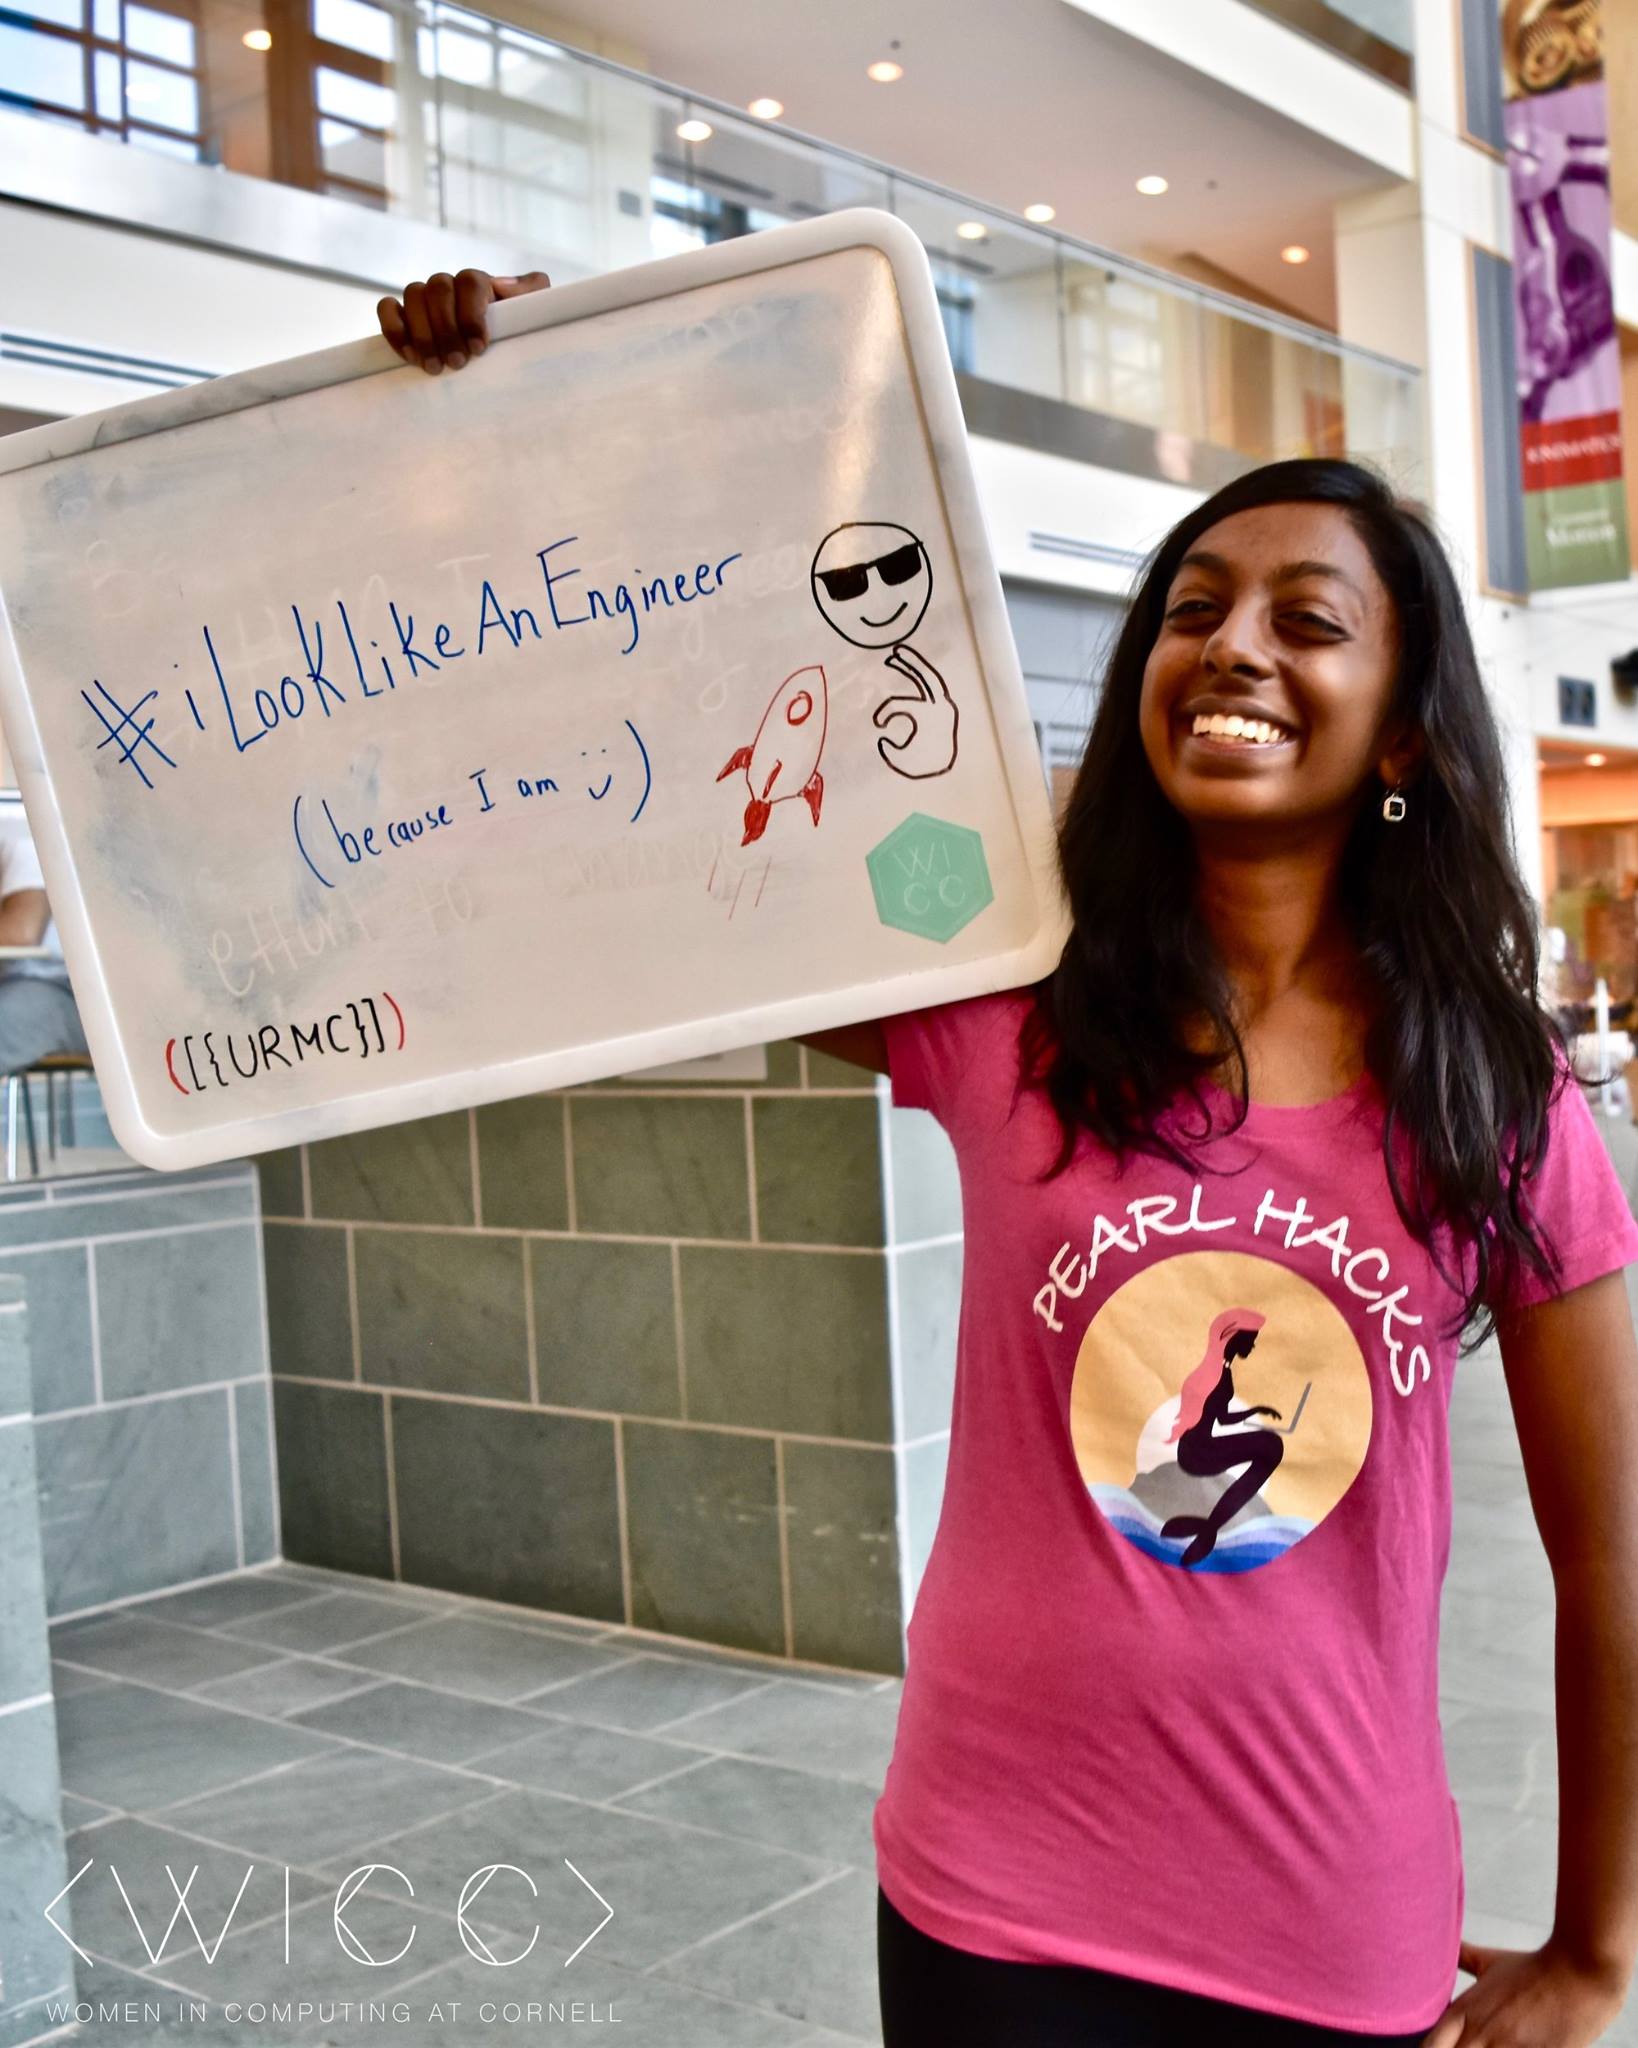 #iLookLikeAnEngineer
(because I am :))
WI
CC
([{URMC}])
effort to change
PEARL HACKS
<WICC>
WOMEN IN COMPUTING AT CORNELL